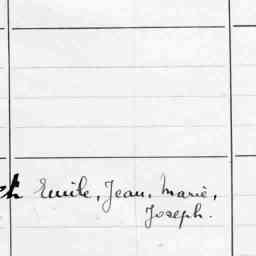 Emile, Jean, Marie,
Joseph.